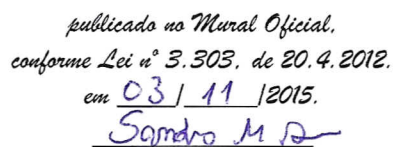 publicado no Mural Oficial,
conforme Lei n° 3.303, de 20.4.2012,
em 03 / 11 /2015.
Sandro M